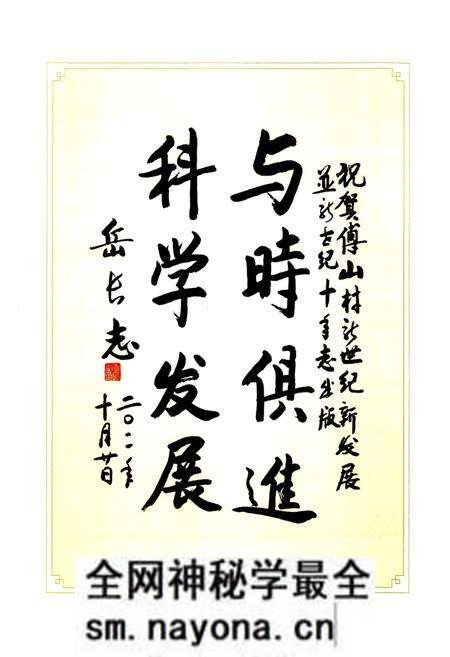 祝贺傅山村新世纪新发展
並新世纪十年志出版
与時俱進
科学发展
岳长志
二〇一一年
十月廿日
全网神秘学最全
sm.nayona.cn